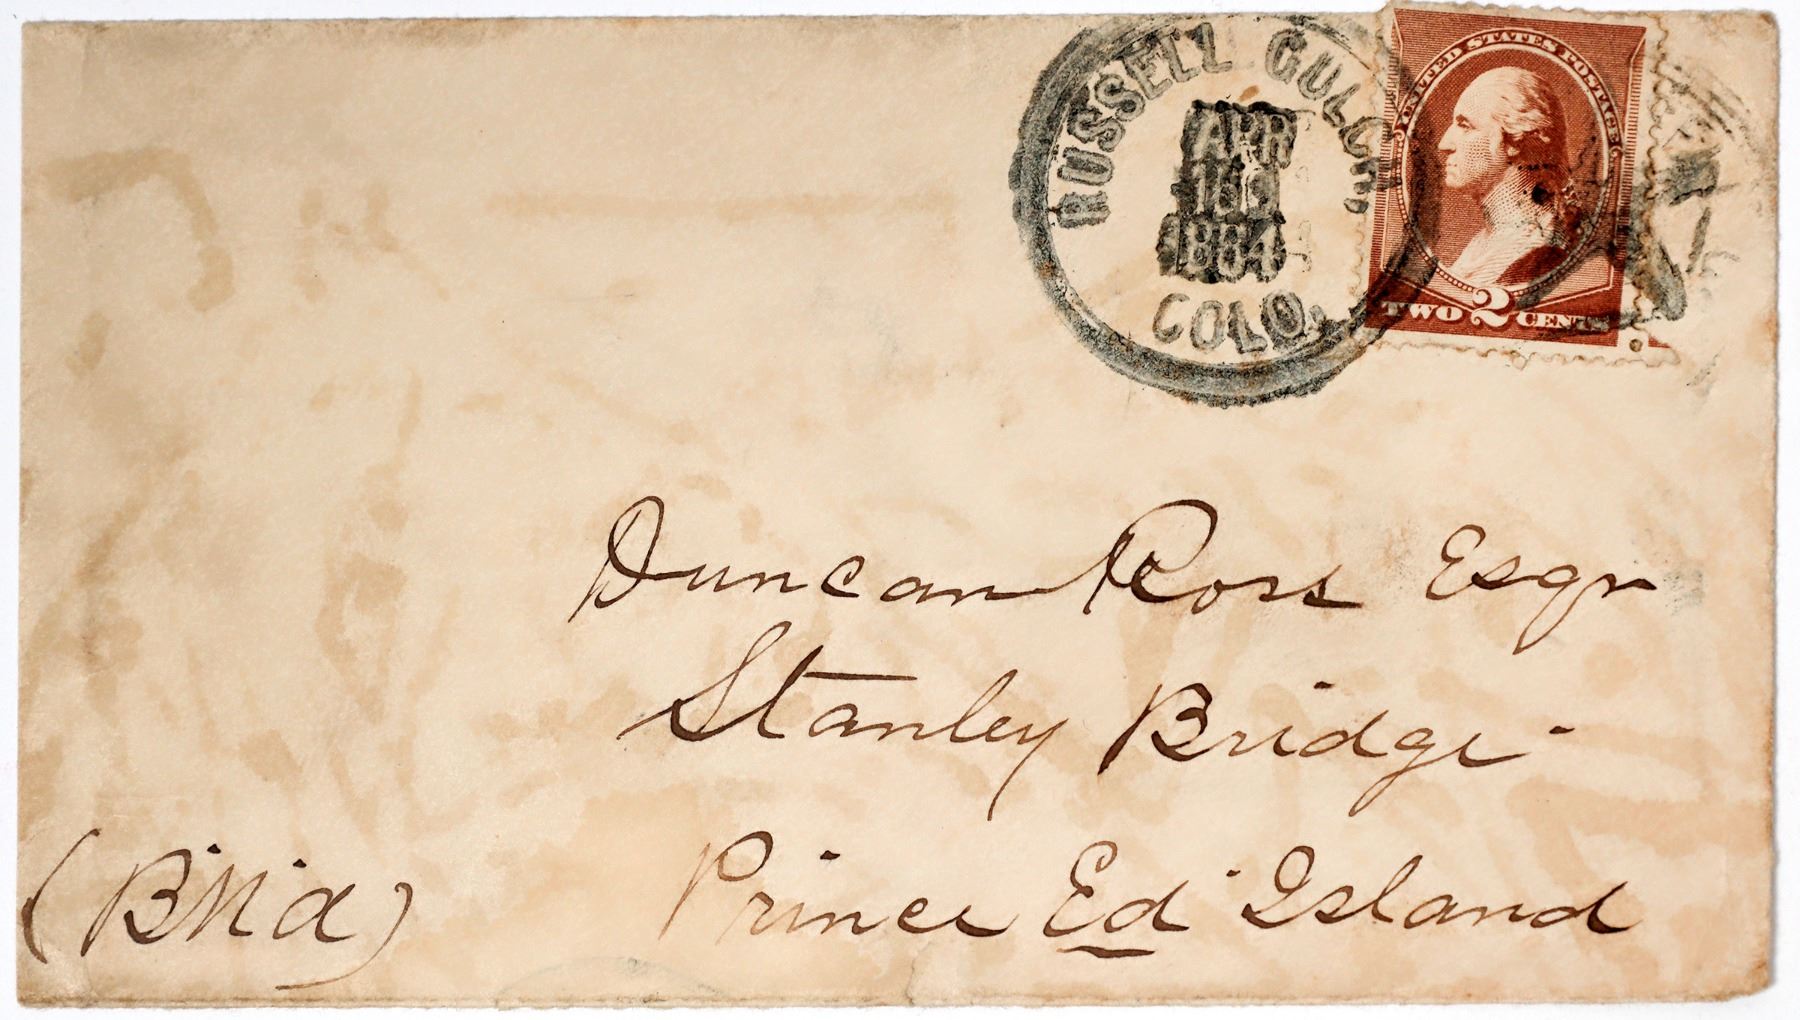 RUSSELL GULCH,
APR
1884
COLO.
UNITED STATES POSTAGE
TWO 2 CENTS
Duncan Ross Esqr
Stanley Bridge
Prince Ed Island
(B.N.a)